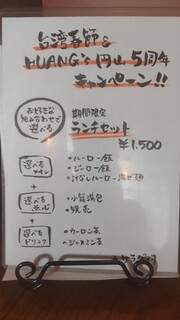 台湾春節&
HUANG's 円山 5周年
キャンペーン!!
お好きな
組み合わせで
選べる
期間限定
ランチセット
¥1,500
選べる
メイン
・ルーロー飯
・ジーロー飯
・汁なしルーロー混ぜ麺
+
選べる
点心
・小籠包
・焼売
+
選べる
ドリンク
・ウーロン茶
・ジャスミン茶